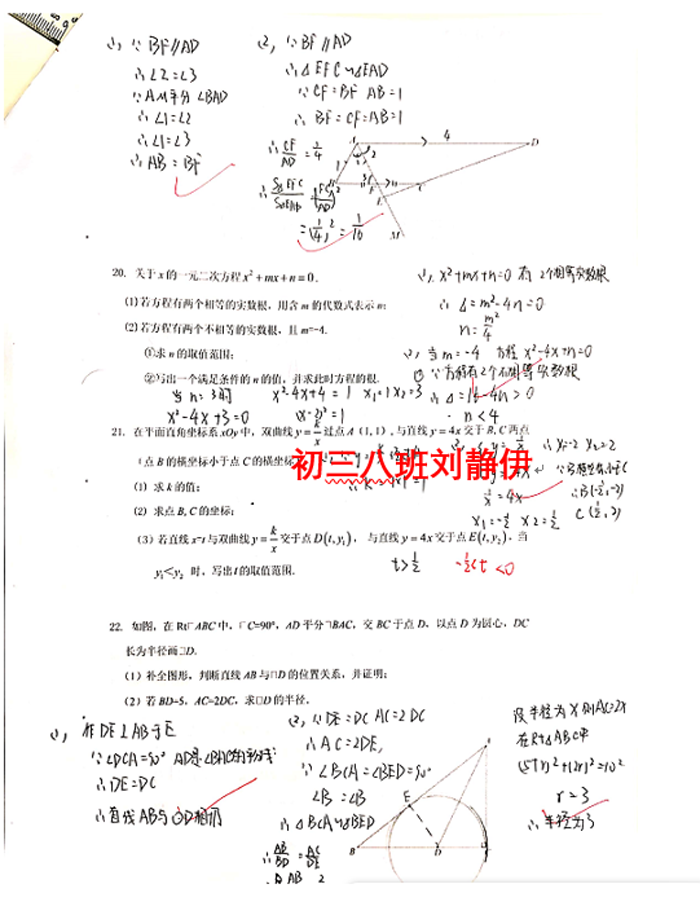 (1) ∵ BF∥AD
∴ ∠2=∠3
∵ AM平分 ∠BAD
∴ ∠1=∠2
∴ ∠1=∠3
∴ AB = BF
(2) ∵ BF∥AD
∴ △EFC∽△EAD
∵ CF=BF AB=1
∴ BF=CF=AB=1
4
D
M
20. 关于x的一元二次方程x²+mx+n=0.
(1)若方程有两个相等的实数根，用含m的代数式表示n;
(2)若方程有两个不相等的实数根，且m=-4.
①求n的取值范围;
②写出一个满足条件的n的值，并求此时方程的根.
当 n=3时
x²-4x+3=0
x²-4x+4=1 x₁=1 x₂=3
(x-2)²=1
(1) x²+mx+n=0 有 2个相等实数根
∴ Δ=m²-4n=0
n=m²/4
(2) 当m=-4 方程 x²-4x+n=0
① ∵方程有2个不相等实数根
∴ Δ=16-4n>0
n<4
21. 在平面直角坐标系xOy中，双曲线y=k/x过点A(1,1),与直线y=4x交于B,C两点
点B的横坐标小于点C的横坐标
初三八班刘静伊
(1) 求k的值;
(2) 求点B,C的坐标;
(3)若直线x=t与双曲线y=k/x交于点D(t,y₁), 与直线y=4x交于点E(t,y₂). 当
y₁<y₂ 时，写出t的取值范围.
1/x=4x
x₁=-1/2 x₂=1/2
∴B(-1/2,-2)
C(1/2,2)
t>1/2 -1/2<t<0
22. 如图，在Rt ABC中， C=90°，AD平分 BAC，交BC于点D，以点D为圆心，DC
长为半径画 D.
(1) 补全图形，判断直线AB与 D的位置关系，并证明;
(2) 若BD=5，AC=2DC，求 D的半径.
(1) 作DE⊥AB于E
∵ ∠DCA=90° AD是∠BAC的平分线
∴ DE=DC
∴ 直线AB与⊙D相切
(2) ∵DE=DC AC=2DC
∴ AC=2DE,
∵ ∠BCA=∠BED=90°
∠B=∠B
∴ △BCA∽△BED
∴ AB/BD=AC/DE
设半径为x 则AC=2x
在Rt△ABC中
r=3
∴ 半径为3
E
B
D